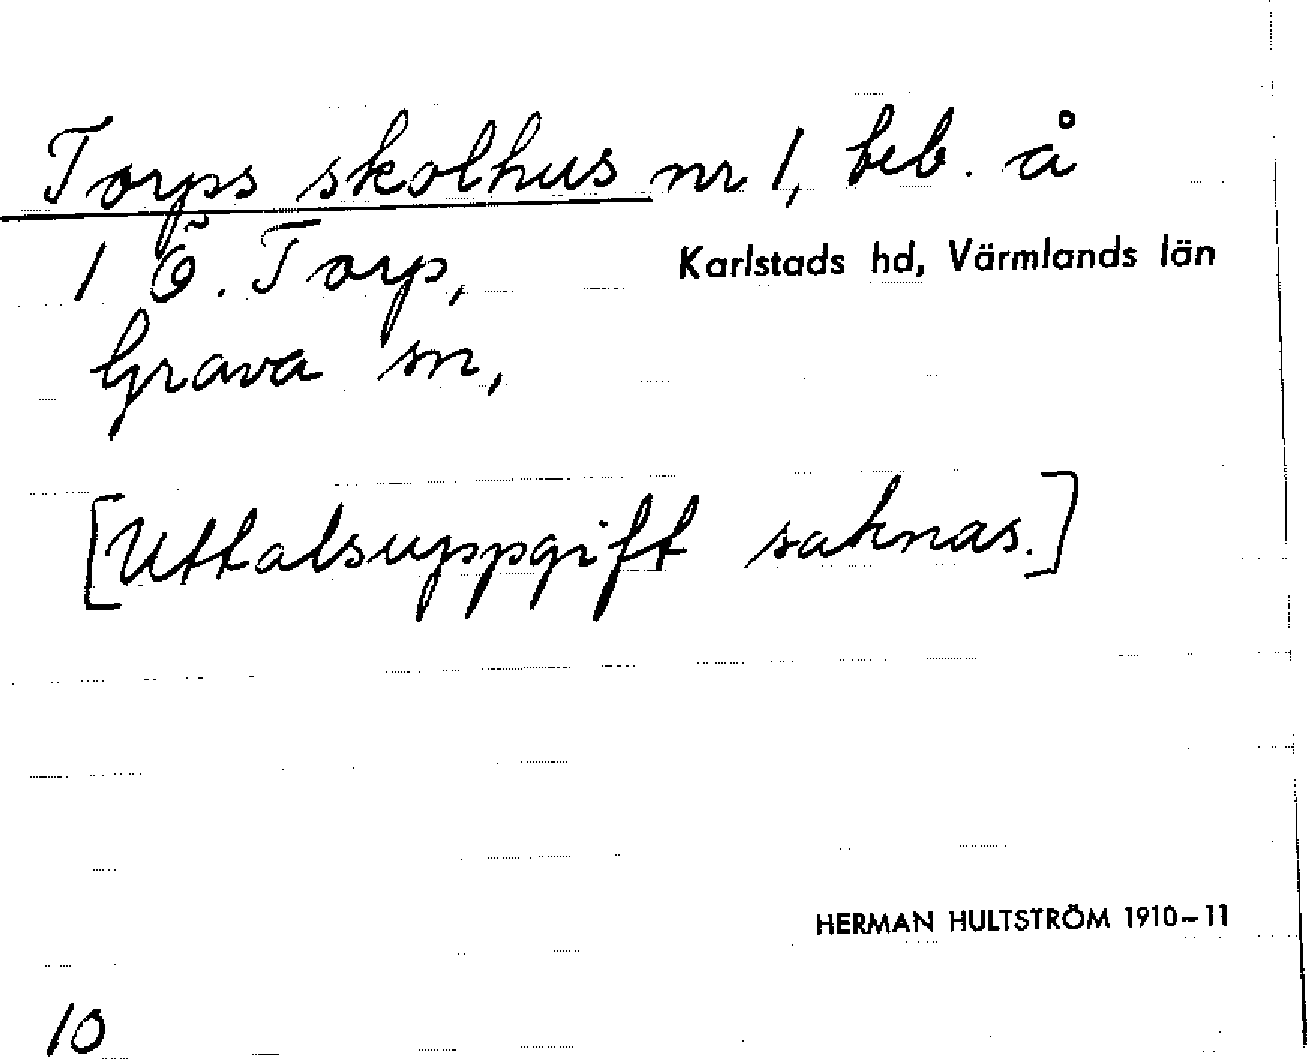 Torps skolhus nr 1, beb. å
1 Ö. Torp, Karlstads hd, Värmlands län
Grava sn,
[Uttalsuppgift saknas.]
HERMAN HULTSTRÖM 1910–11
10